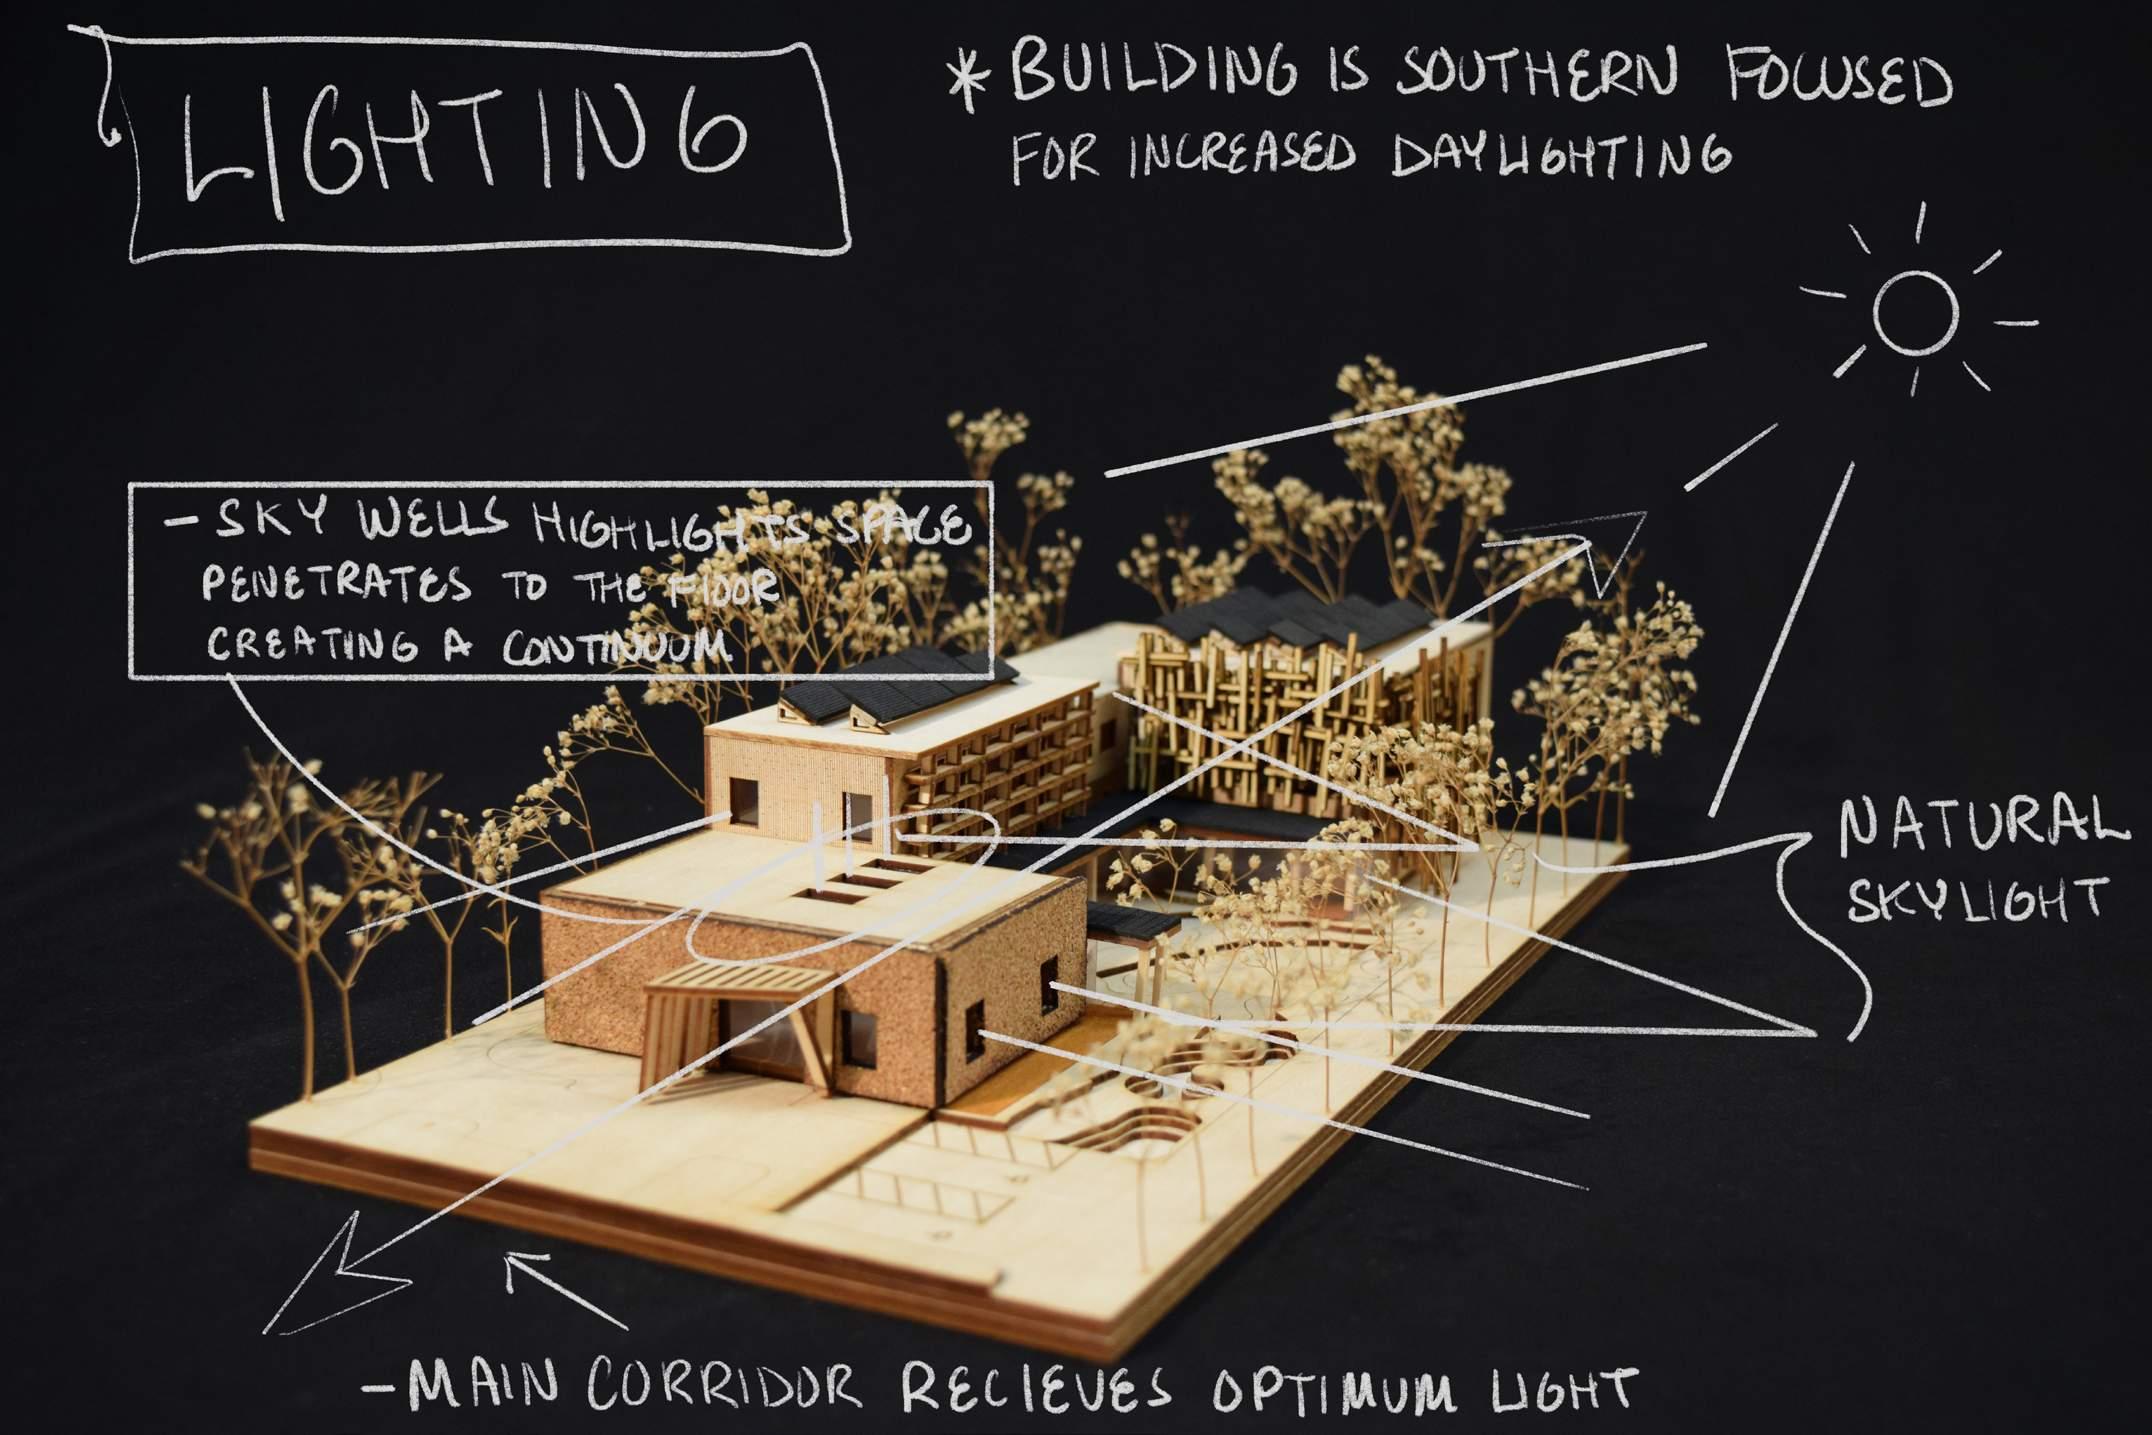 LIGHTING
* BUILDING IS SOUTHERN FOCUSED
FOR INCREASED DAYLIGHTING
- SKY WELLS HIGHLIGHTS SPACE
PENETRATES TO THE FLOOR
CREATING A CONTINUUM
NATURAL
SKYLIGHT
- MAIN CORRIDOR RECIEVES OPTIMUM LIGHT